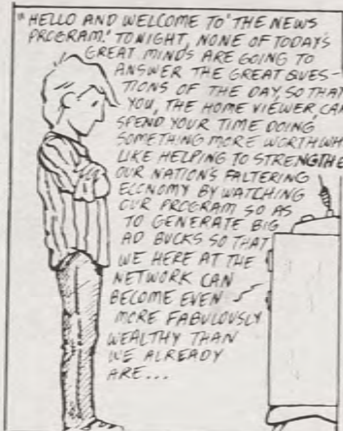 "HELLO AND WELCOME TO 'THE NEWS
PROGRAM.' TONIGHT, NONE OF TODAY'S
GREAT MINDS ARE GOING TO
ANSWER THE GREAT QUES-
TIONS OF THE DAY, SO THAT
YOU, THE HOME VIEWER, CAN
SPEND YOUR TIME DOING
SOMETHING MORE WORTHWH
LIKE HELPING TO STRENGTHE
OUR NATION'S FALTERING
ECONOMY BY WATCHING
OUR PROGRAM SO AS
TO GENERATE BIG
AD BUCKS SO THAT
WE HERE AT THE
NETWORK CAN
BECOME EVEN
MORE FABULOUSLY
WEALTHY THAN
WE ALREADY
ARE...